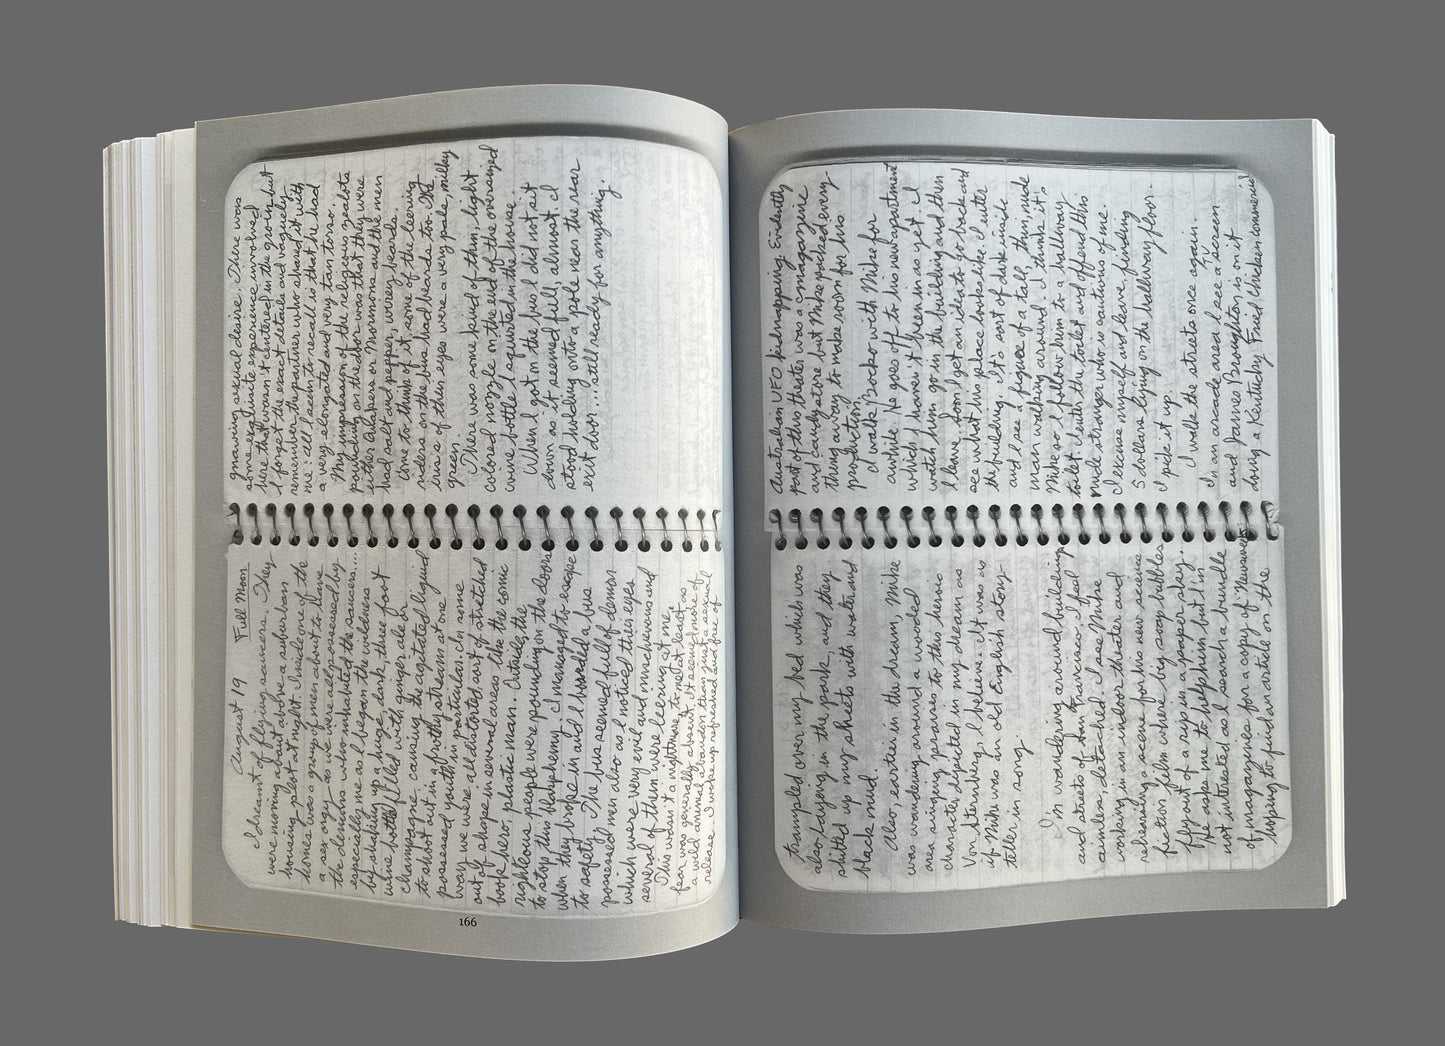 August 19 Full Moon
I dreamt of flying saucers. They
were moving about above a suburban
housing plot at night. Inside one of the
homes was a group of men about to have
a sex orgy — as we were all possessed by
the aliens who inhabited the saucers....
especially me as I began the wildness
by shaking up a huge, dark, three foot
wine bottle filled with ginger ale or
champagne, causing the agitated liquid
to shoot out in a frothy stream at one
possessed youth in particular. In some
way we were all distorted sort of stretched
out of shape in several areas like the comic
book hero, plastic man. Outside, the
righteous people were pounding on the doors
to stop this blasphemy. I managed to escape
when they broke in and I boarded a bus
to safety. The bus seemed full of demon
possessed men also as I noticed their eyes
which were very evil and mischievous and
several of them were leering at me.
This wasn't a nightmare to me at least as
fear was generally absent. It seemed more of
a wild animal abandon than just a sexual
release. I woke up refreshed and free of
gnawing sexual desire. There was
some exquisite experience involved
here that wasn't centered in the groin but
I forget the exact details and vaguely
remember the partner who shared it with
me: all I seem to recall is that he had
a very elongated and very tan torso.
My impression of the religious zealots
pounding on the door was that they were
either Quakers or Mormons and the men
had salt and pepper, wirey beards.
Come to think of it, some of the leering
riders on the bus had beards too. The
iris's of their eyes were a very pale, milkey
green.
There was some kind of thin, light
colored nozzle on the end of the oversized
wine bottle I squirted in the house.
When I got on the bus I did not sit
down as it seemed full, almost. I
stood holding onto a pole near the rear
exit door ... still ready for anything.
166
trampled over my bed which was
also laying in the park, and they
shitted up my sheets with water and
black mud.
Also, earlier in the dream, Mike
was wandering around a wooded
area singing praises to this heroic
character, depicted in my dream as
Von Sternberg, I believe. It was as
if Mike was an old English story-
teller in song.
In wandering around buildings
and streets of San Francisco I feel
aimless, detached. I see Mike
working in an indoor theater and
rehearsing a scene for his new science
fiction film where big soap bubbles
fly out of a rip in a paper sky.
He asks me to help him but I'm
not interested as I search a bundle
of magazines for a copy of "Newsweek"
hoping to find an article on the
Australian UFO kidnapping. Evidently
part of this theater was a magazine
and candy store but Mike packed every
thing away to make room for his
production.
I walk Bocko with Mike for
awhile. He goes off to his new apartment
which I haven't been in as yet. I
watch him go in the building and then
leave. Soon I get an idea to go back and
see what his place looks like. I enter
the building. It's sort of dark inside
and I see a figure of a tall, thin, nude
man walking around. I think it's
Mike so I follow him to a hallway
toilet. I use the toilet and offend this
nude stranger who is cautious of me.
I excuse myself and leave, finding
5 dollars lying on the hallway floor.
I pick it up.
I walk the streets once again.
In an arcade area I see a TV screen
and James Broughton is on it
doing a Kentucky Fried Chicken commercial